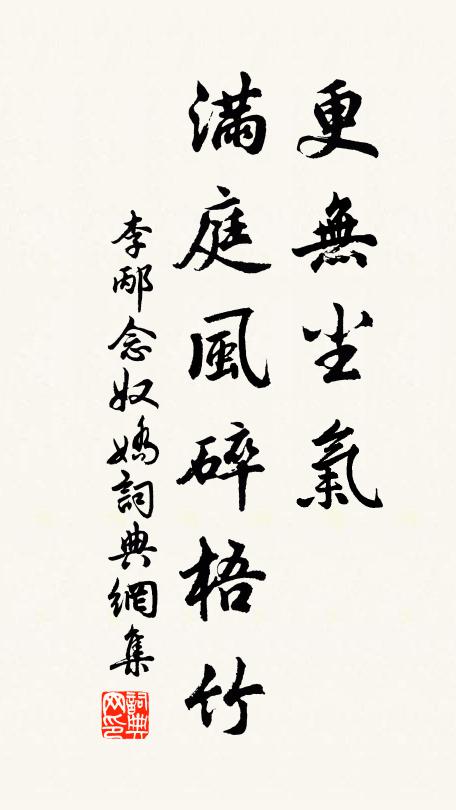 更無尘氣
滿庭風碎梧竹
李邴念奴嬌詞典網集
詞典网印